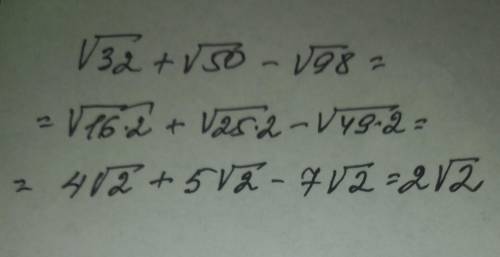 √32 + √50 - √98 =
= √16·2 + √25·2 - √49·2 =
= 4√2 + 5√2 - 7√2 = 2√2